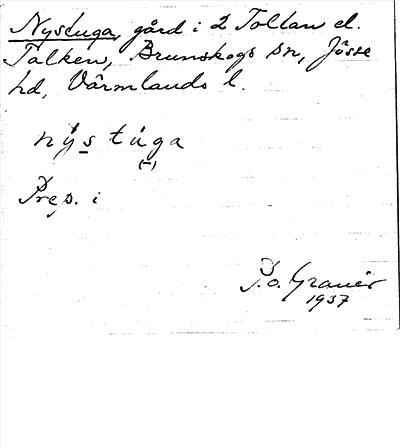 Nystuga, gård i 2 Tollan el.
Talken, Brunskogs sn, Jösse
hd, Värmlands l.
nýs túga
(-)
Prep. i
P.o. Granér
1937